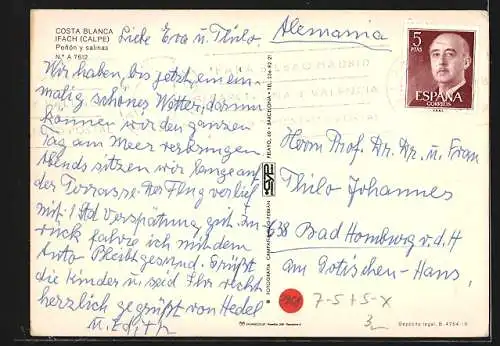 COSTA BLANCA
IFACH (CALPE)
Peñón y salinas
N.° A 7612
Liebe Eva u. Thilo.
Alemania
5
PTAS
ESPAÑA
CORREOS
Wir haben bis jetzt ein ein-
malig schönes Wetter, darum
können wir den ganzen
Tag am Meer verbringen.
Abends sitzen wir lange auf
der Terrasse. Der Flug verlief
mit 1 Std Verspätung gut. Zu-
rück fahre ich mit dem
Auto. Bleibt gesund. Grüßt
die Kinder u. seid Ihr recht
herzlich gegrüßt von Hedel
u. Edith
BARCELONA
FOTOGRAFIA
Herrn Prof. Dr. Dr. u. Frau
Thilo Johannes
638 Bad Homburg v.d.H
am Gotischen-Haus,
7-5+5-X
Depósito legal, B.